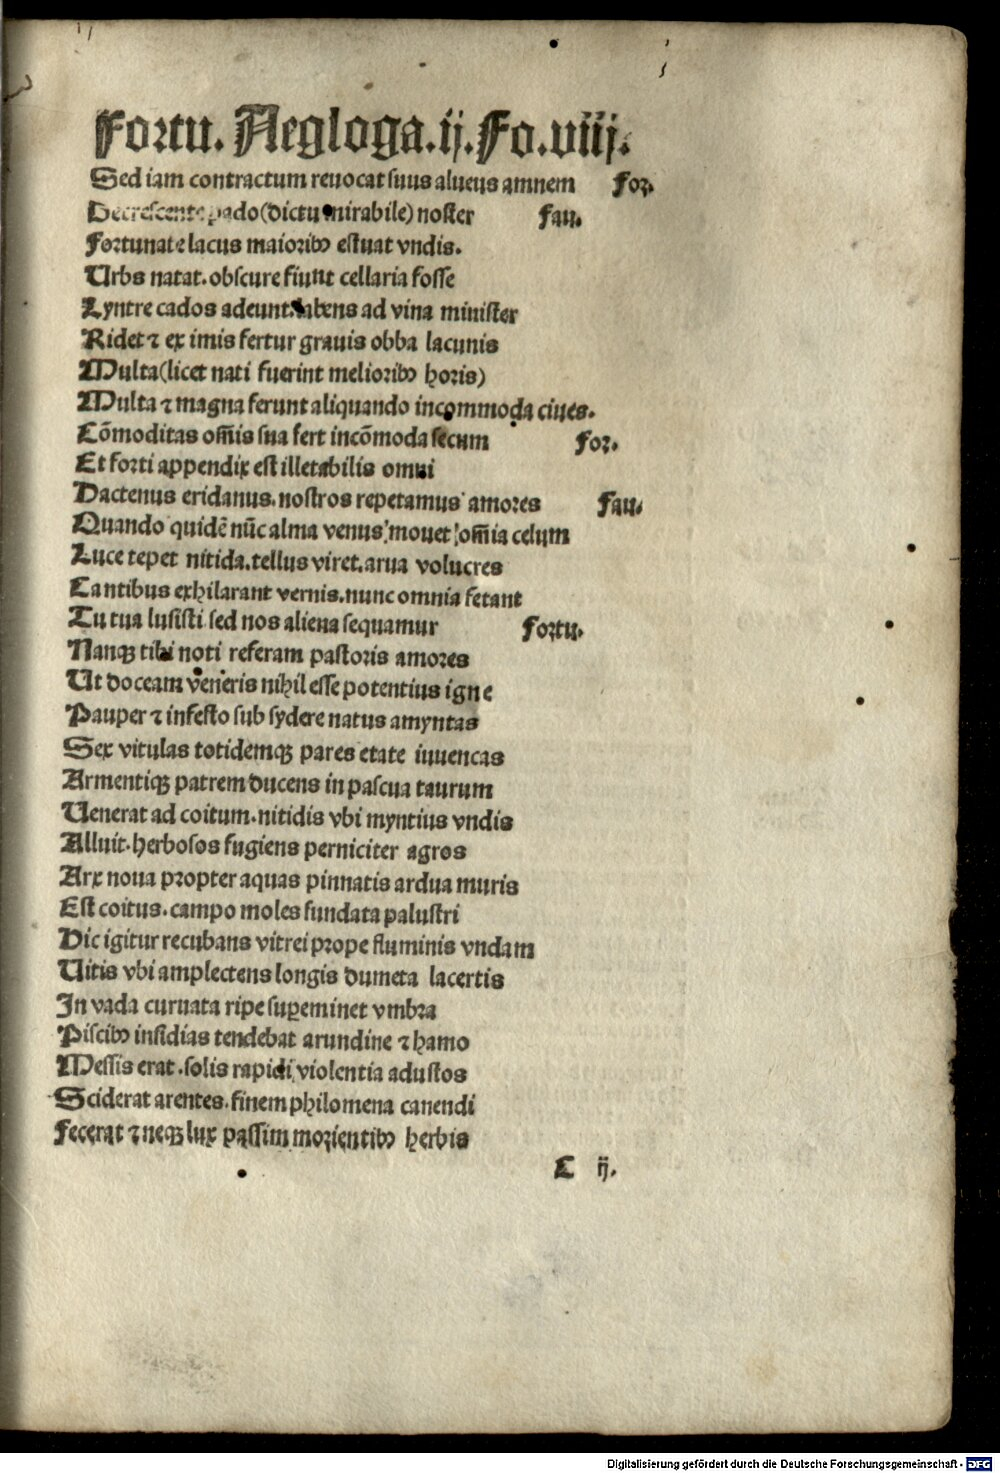 Fortu. Aegloga.ij.Fo.viij.
Sed iam contractum reuocat suus alueus amnem For.
Decrescente pado(dictu mirabile) noster Fau.
Fortunate lacus maiorib⁹ estuat vndis.
Urbs natat.obscure fiunt cellaria fosse
Lyntre cados adeunt.labens ad vina minister
Ridet ⁊ ex imis fertur grauis obba lacunis
Multa(licet nati fuerint meliorib⁹ horis)
Multa ⁊ magna ferunt aliquando incommoda ciues.
Cōmoditas om̄is sua fert incōmoda secum For.
Et forti appendix est illetabilis omni
Hactenus eridanus.nostros repetamus amores Fau.
Quando quidē nūc alma venus mouet om̄ia celum
Luce tepet nitida.tellus viret.arua volucres
Cantibus exhilarant vernis.nunc omnia fetant
Tu tua lusisti sed nos aliena sequamur Fortu.
Nanqꝫ tibi noti referam pastoris amores
Ut doceam veneris nihil esse potentius igne
Pauper ⁊ infesto sub sydere natus amyntas
Sex vitulas totidemqꝫ pares etate iuuencas
Armentiqꝫ patrem ducens in pascua taurum
Uenerat ad coitum.nitidis vbi myntius vndis
Alluit.herbosos fugiens perniciter agros
Arx noua propter aquas pinnatis ardua muris
Est coitus.campo moles fundata palustri
Hic igitur recubans vitrei prope fluminis vndam
Uitis vbi amplectens longis dumeta lacertis
In vada curuata ripe suꝑeminet vmbra
Piscib⁹ insidias tendebat arundine ⁊ hamo
Messis erat.solis rapidi violentia adustos
Sciderat arentes.finem philomena canendi
Fecerat ⁊ neqꝫ lux passim morientib⁹ herbis
C ij.
Digitalisierung gefördert durch die Deutsche Forschungsgemeinschaft - DFG